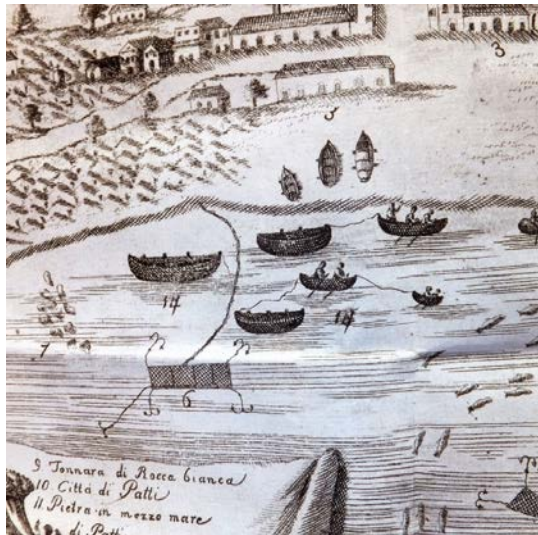 3
14
7
6
9. Tonnara di Rocca bianca
10. Città di Patti
11. Pietra in mezzo mare
di Patti